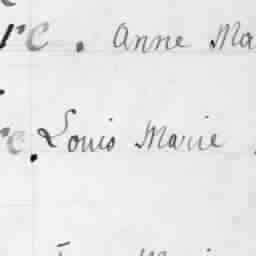 re . Anne Ma
re . Louis Marie